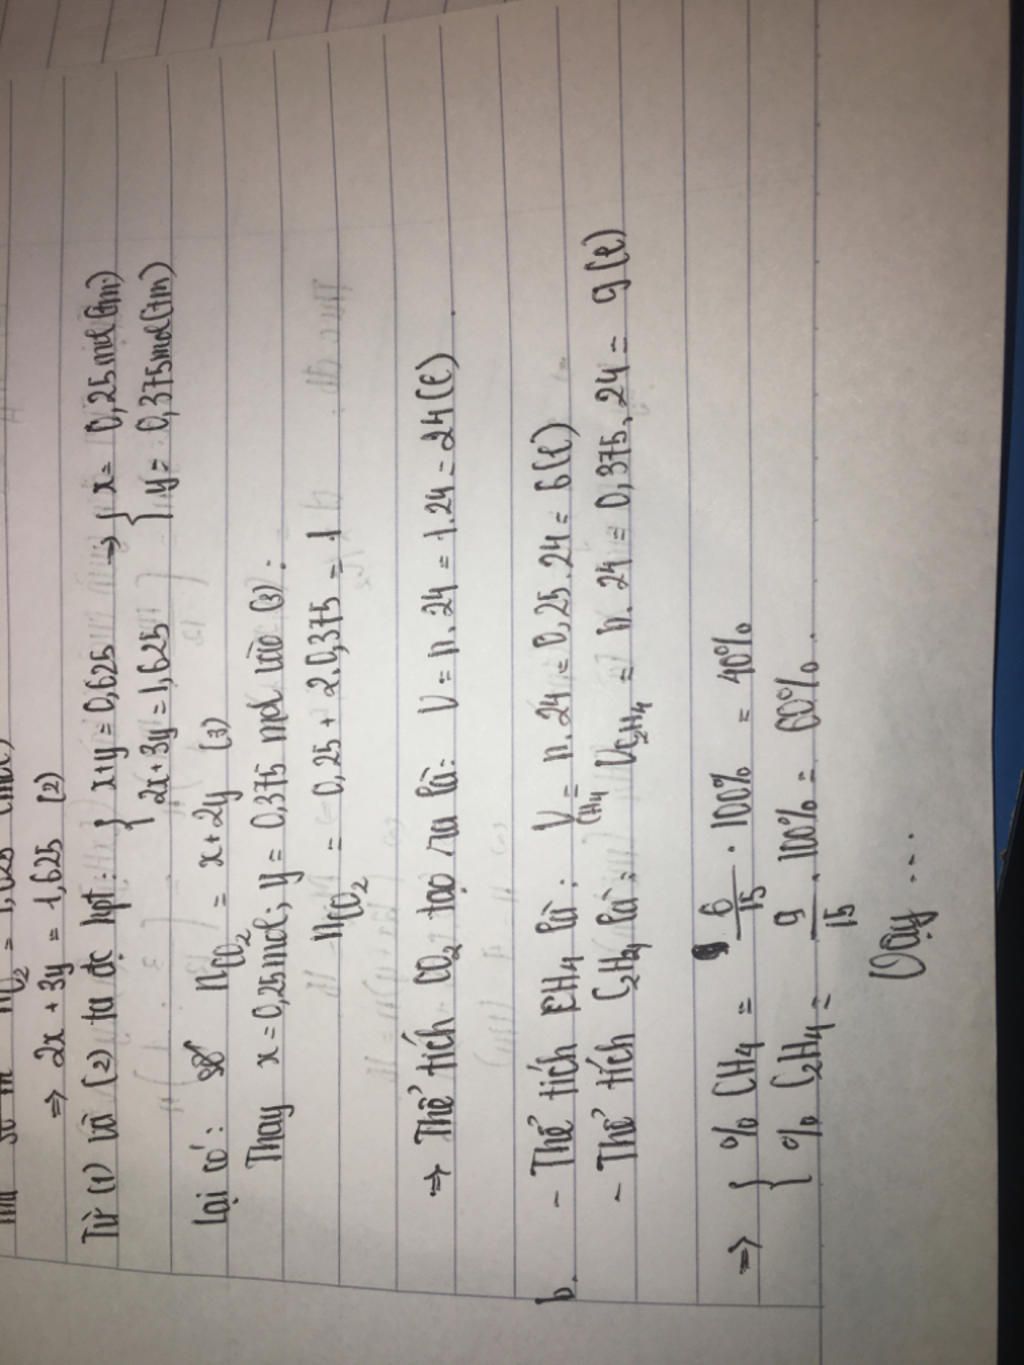 nO₂ = 1,625 (mol)
⇒ 2x + 3y = 1,625 (2)
Từ (1) và (2) ta đc hpt: { x+y = 0,625 → { x = 0,25 mol (tm)
{ 2x + 3y = 1,625 { y = 0,375 mol (tm)
Lại có: nCO₂ = x + 2y (3)
Thay x = 0,25mol; y = 0,375 mol vào (3):
nCO₂ = 0,25 + 2.0,375 = 1
⇒ Thể tích CO₂ tạo ra là: V = n.24 = 1.24 = 24 (l).
b. - Thể tích CH4 là: V CH4 = n.24 = 0,25.24 = 6 (l)
- Thể tích C₂H4 là: VC₂H4 = n.24 = 0,375.24 = 9 (l)
⇒ { % CH4 = 6/15 . 100% = 40%
{ % C₂H4 = 9/15 . 100% = 60%.
Vậy ....